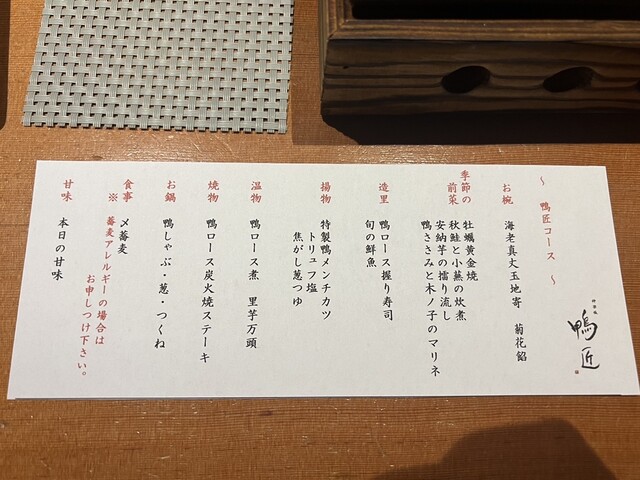 鴨匠
〜 鴨匠コース 〜
お椀
海老真丈玉地寄 菊花餡
季節の
前菜
牡蠣黄金焼
秋鮭と小蕪の炊煮
安納芋の擂り流し
鴨ささみと木ノ子のマリネ
造里
鴨ロース握り寿司
旬の鮮魚
揚物
特製鴨メンチカツ
トリュフ塩
焦がし葱つゆ
温物
鴨ロース煮 里芋万頭
焼物
鴨ロース炭火焼ステーキ
お鍋
鴨しゃぶ・葱・つくね
食事
〆蕎麦
※ 蕎麦アレルギーの場合は
お申しつけ下さい。
甘味
本日の甘味